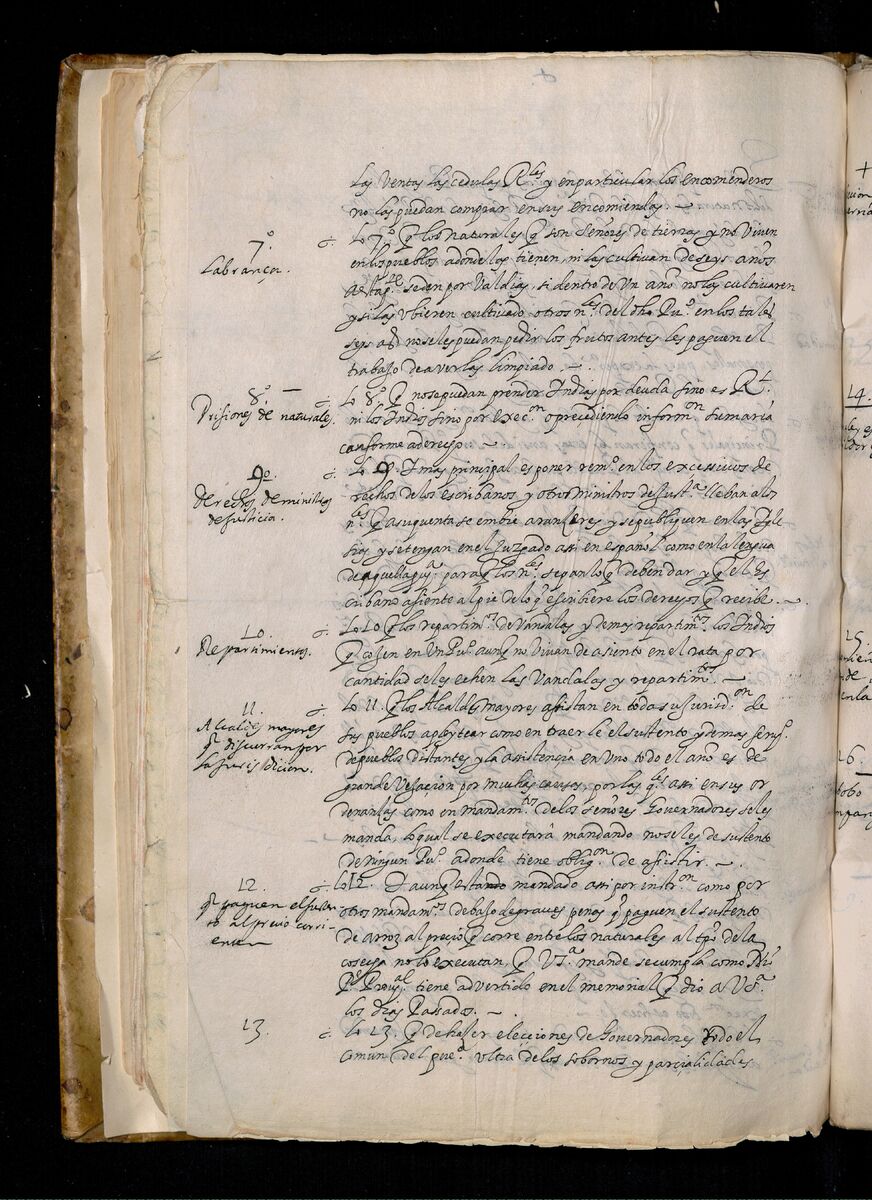 las Ventas las cedulas R.les y en particular los encomenderos
no las puedan comprar en sus encomiendas.
7.º
Labrança.
Lo 7.º q los naturales q son Señores de tierras y no viven
en los pueblos adonde los tienen, ni las cultivan de seys años
se den por Valdias, si dentro de Un año no las cultivaren
y si las Ubieren cultivado otros n.les del dho Pu.º en los tales
seys a.os no se les puedan pedir los frutos antes les paguen el
trabajo de averlas limpiado.
8.º
Prisiones de naturales.
Lo 8.º q no se puedan prender Indias por deuda sino es R.l
ni los Indios sino por exec.on o precediendo inform.on sumaria
conforme a derecho.
9.º
Derechos de ministros
de justicia.
Lo 9. Y mas principal es poner rem.º en los excessivos de
rechos de los escribanos y otros ministros de Just.a lleban a los
n.les q a su quenta se embie aranzeres y se publiquen en las Igle
sias y se tengan en el Juzgado assi en español como en la lengua
de aquella pu.a para q los n.les sepan lo q deben dar y q el Es
cribano asiente al pie de lo q escribiere los derechos q recibe.
10.
Repartimientos.
Lo 10 q los repartim.tos de Vandalas y demas repartim.tos los Indios
q cojen en Un Pu.º aunq no vivan de asiento en el rata por
cantidad se les echen las Vandalas y repartim.tos
11.
Alcaldes mayores
q discurran por
la jurisdicion.
Lo 11. q los Alcaldes mayores assistan en toda su jurisd.on de
sus pueblos asi como en traerle el sustento y demas serv.º
de pueblos distantes y la asistencia en Uno todo el año es de
grande Vejacion por muchas causas, por las q.les assi en sus or
denanzas como en mandam.tos de los señores Governadores se les
manda, lo qual se executarâ mandando no se les de sustento
de ningun Pu.º adonde tiene oblig.on de asistir.
12.
q paguen el susten-
to al precio corri-
ente
Lo 12. Y aunq estando mandado assi por instr.on como por
otros mandam.tos debajo de graves penas q paguen el sustento
de arroz al precio q corre entre los naturales al tpo de la
cosecha no lo executan, q VS.a mande se cumpla como N.ro
P.e Prov.al tiene advertido en el memorial q dio a VS.a
los dias Passados.
13.
Lo 13. q de haser elecciones de Governadores todo el
comun del pue.º ultra de los sobornos y parcialidades